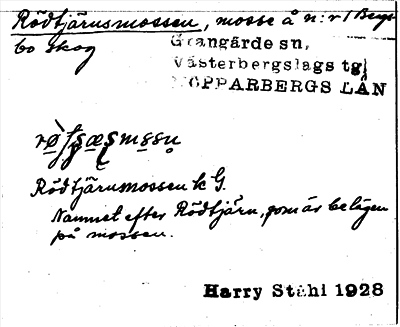 Rödtjärnsmossen, mosse å n:r 1 Bergs
bo skog
Grangärde sn,
Västerbergslags tg,
KOPPARBERGS LÄN
Rödtjärnmossen k G.
Namnet efter Rödtjärn, som är belägen
på mossen.
Harry Ståhl 1928